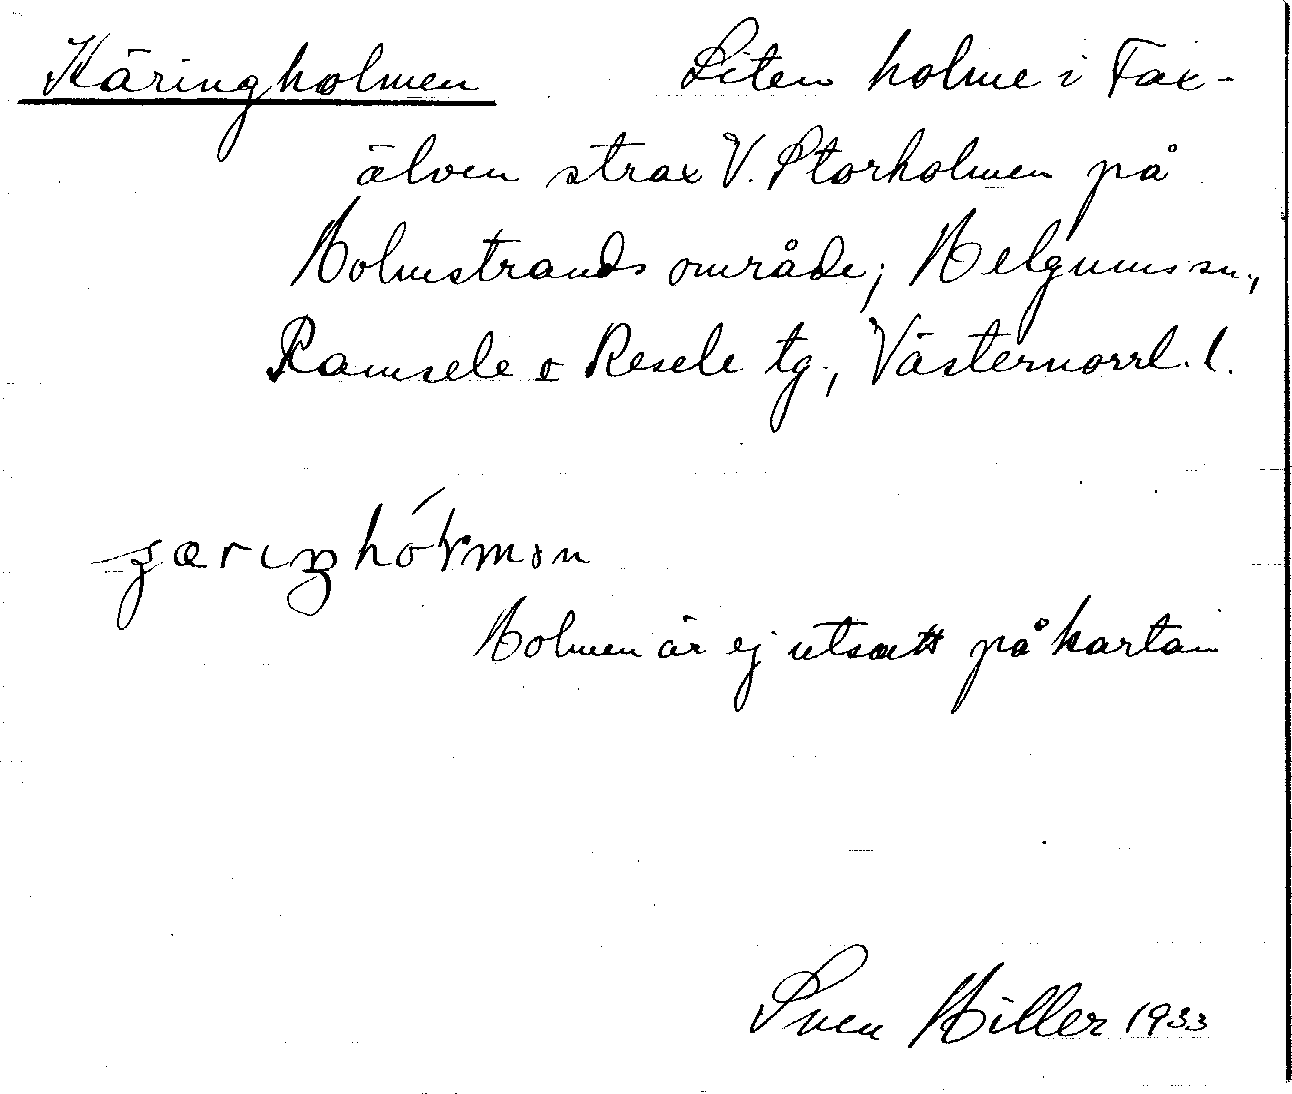 Käringholmen Liten holme i Fax-
älven strax V. Storholmen på
Holmstrands område; Helgums sn.,
Ramsele o Resele tg., Västernorrl. l.
Holmen är ej utsatt på kartan
Sven Hiller 1933